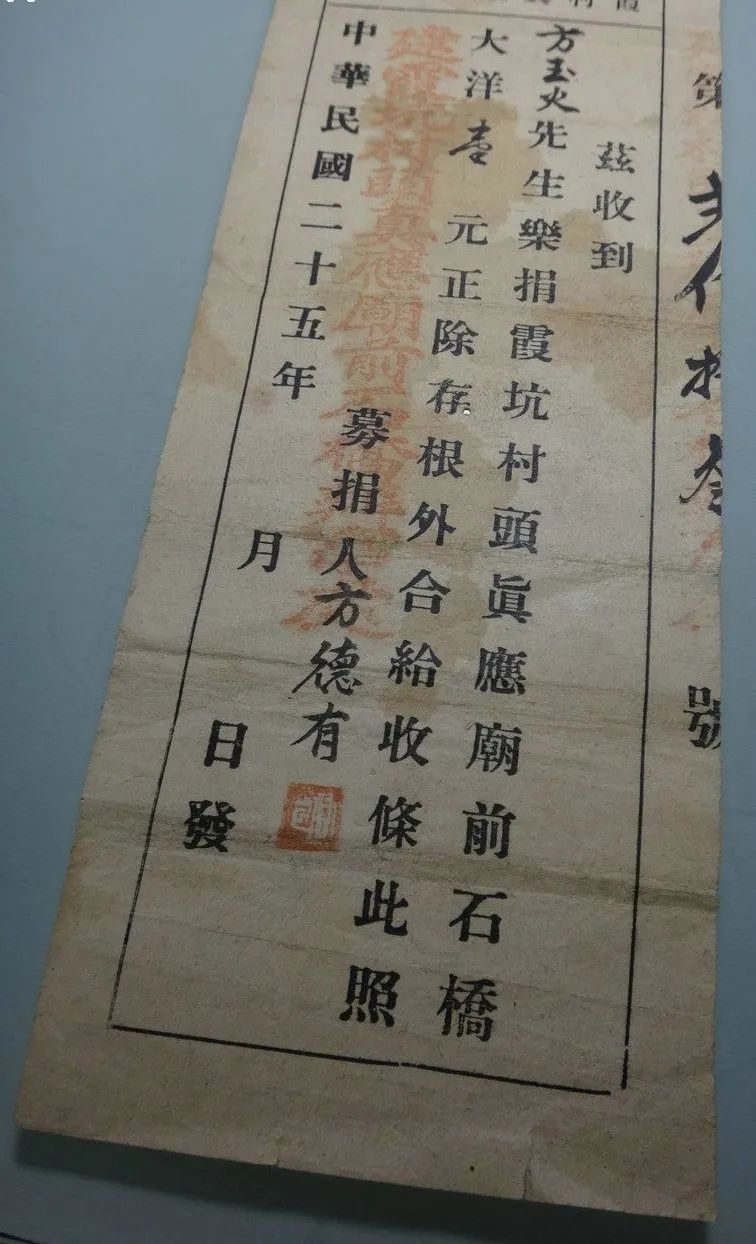 第 號
茲收到
方玉火先生樂捐霞坑村頭眞應廟前石橋
大洋壹元正除存根外合給收條此照
建霞坑村頭眞應廟前石橋
募捐人方德有
中華民國二十五年 月 日發